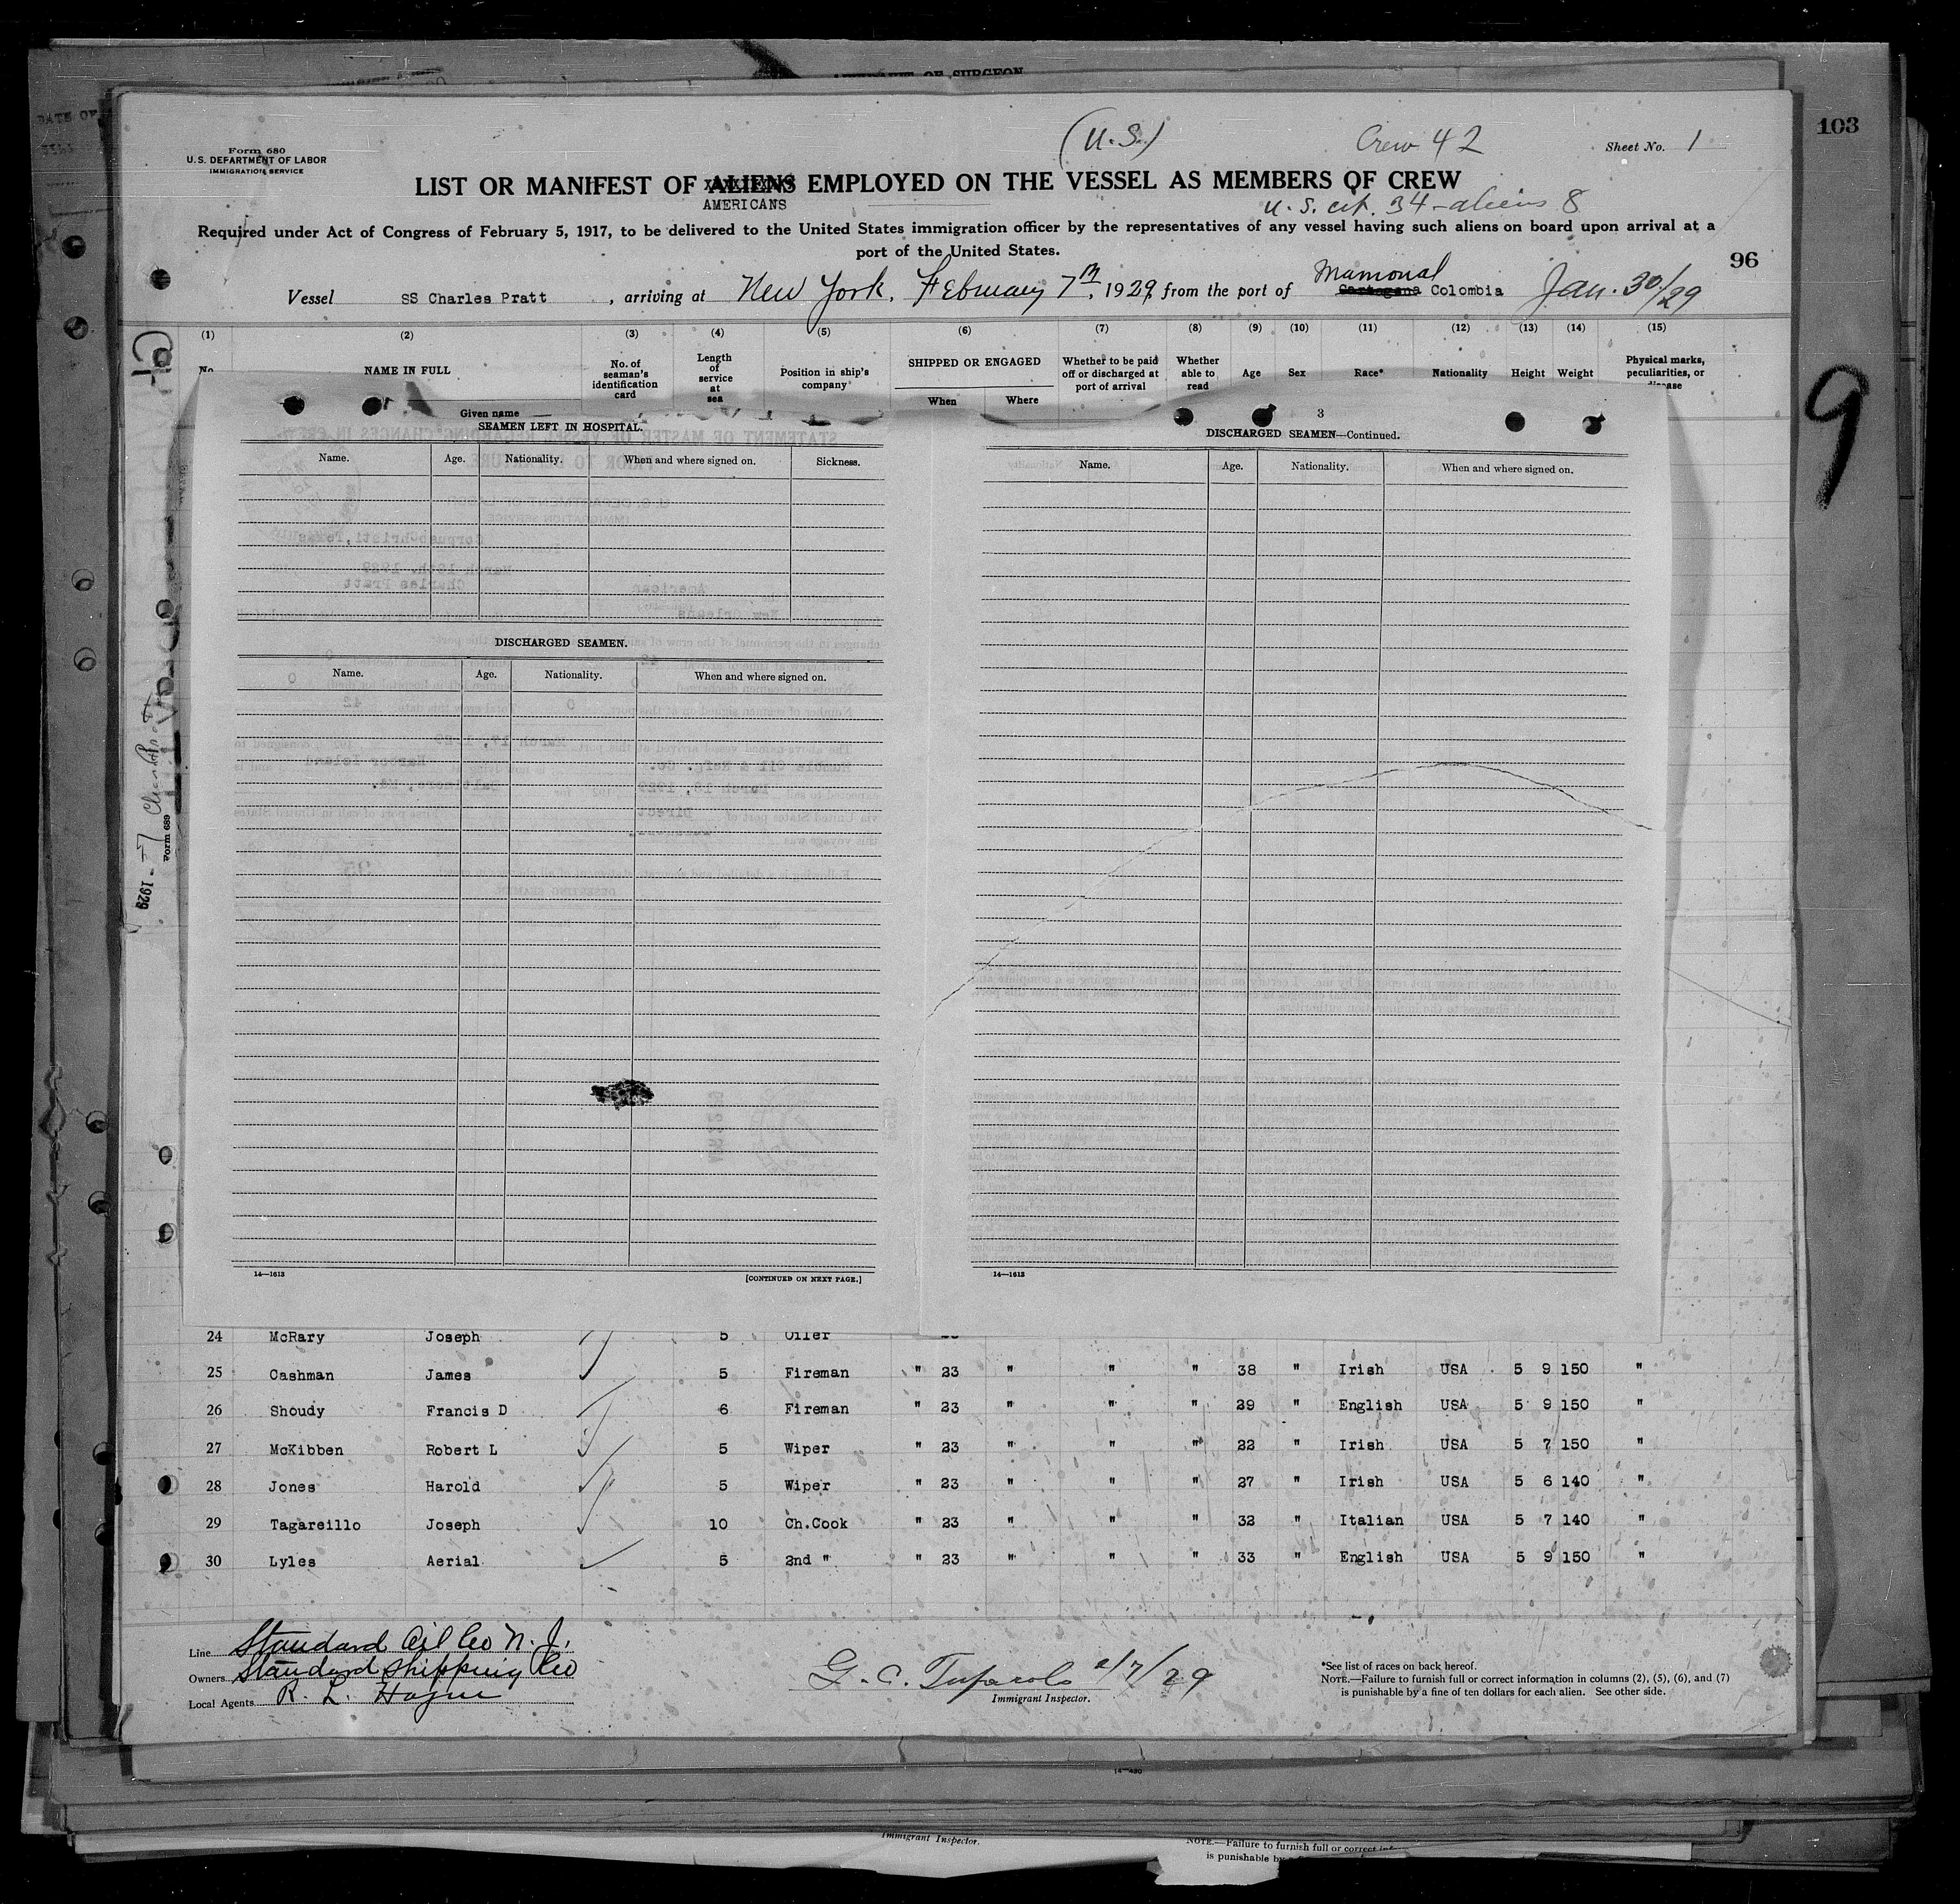 103
Form 680
U.S. DEPARTMENT OF LABOR
IMMIGRATION SERVICE
(U.S.)
Crew 42
Sheet No. 1
LIST OR MANIFEST OF ALIENS EMPLOYED ON THE VESSEL AS MEMBERS OF CREW
AMERICANS
U.S. cit. 34 - aliens 8
Required under Act of Congress of February 5, 1917, to be delivered to the United States immigration officer by the representatives of any vessel having such aliens on board upon arrival at a
port of the United States.
96
Vessel SS Charles Pratt, arriving at New York, February 7th, 1929, from the port of Mamonal Cartagena Colombia Jan. 30/29
(1) (2) (3) (4) (5) (6) (7) (8) (9) (10) (11) (12) (13) (14) (15)
No. NAME IN FULL No. of seaman's identification card Length of service at sea Position in ship's company SHIPPED OR ENGAGED Whether to be paid off or discharged at port of arrival Whether able to read Age Sex Race* Nationality Height Weight Physical marks, peculiarities, or
When Where
Given name
9
SEAMEN LEFT IN HOSPITAL.
Name. Age. Nationality. When and where signed on. Sickness.
DISCHARGED SEAMEN.
Name. Age. Nationality. When and where signed on.
14—1613 [CONTINUED ON NEXT PAGE.]
3
DISCHARGED SEAMEN—Continued.
Name. Age. Nationality. When and where signed on.
14—1613
Form 689
1929
24 McRary Joseph 5 Oiler
25 Cashman James 5 Fireman " 23 " " " 38 " Irish USA 5 9 150 "
26 Shoudy Francis D 6 Fireman " 23 " " " 29 " English USA 5 9 150 "
27 McKibben Robert L 5 Wiper " 23 " " " 22 " Irish USA 5 7 150 "
28 Jones Harold 5 Wiper " 23 " " " 27 " Irish USA 5 6 140 "
29 Tagareillo Joseph 10 Ch.Cook " 23 " " " 32 " Italian USA 5 7 140 "
30 Lyles Aerial 5 2nd " " 23 " " " 33 " English USA 5 9 150 "
Line Standard Oil Co N. J.
Owners Standard Shipping Co
Local Agents R. L. Hague
G. C. 2/7/29
Immigrant Inspector.
*See list of races on back hereof.
NOTE.—Failure to furnish full or correct information in columns (2), (5), (6), and (7)
is punishable by a fine of ten dollars for each alien. See other side.
14—480
Immigrant Inspector.
NOTE.—Failure to furnish full or correct
is punishable by